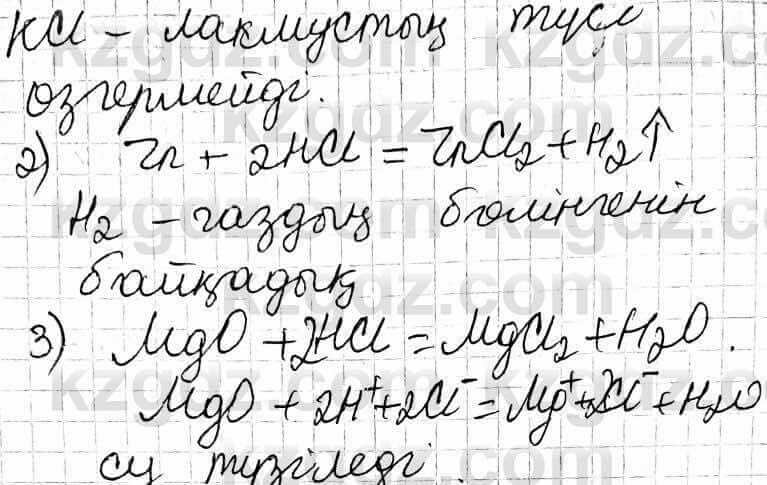 KCl – лакмустың түсі
өзгермейді.
2) Zn + 2HCl = ZnCl₂ + H₂↑
H₂ – газдың бөлінгенін
байқадық
3) MgO + 2HCl = MgCl₂ + H₂O.
MgO + 2H⁺ + 2Cl⁻ = Mg⁺ + 2Cl⁻ + H₂O
су түзіледі.